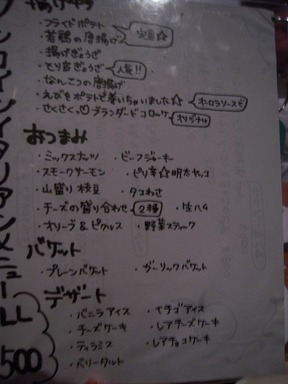 揚げもの
・フライドポテト 定番☆
・若鶏の唐揚げ
・揚げぎょうざ
・とり皮ぎょうざ 人気!!
・なんこつの唐揚げ
・えびをポテトで巻いちゃいました☆
・さくさく♡ブランダードコロッケ オリジナル
おつまみ
・ミックスナッツ ・ビーフジャーキー
・スモークサーモン ・ピリ辛☆明太ヤッコ
・山盛り枝豆 ・タコわさ
・チーズの盛り合わせ 2種 ・生ハム
・オリーブ&ピクルス ・野菜スティック
バケット
・プレーンバケット ・ガーリックバケット
デザート
・バニラアイス ・イチゴアイス
・チーズケーキ ・レアチーズケーキ
・ティラミス ・レアチョコケーキ
・ベリータルト
ワンコインイタリアンメニュー
ALL
500